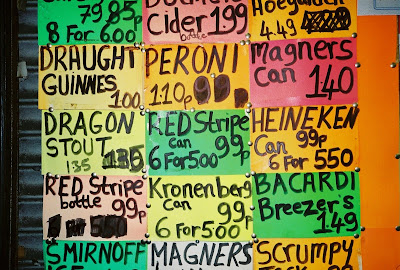 79 85p
8 For 6.00
Cider 199
bottle
Hoegaarden
4.49
DRAUGHT
GUINNES
100
PERONI
110p
Magners
Can 140
DRAGON
STOUT
135 135
RED Stripe
can 99p
6 For 500
HEINEKEN
Can 99p
6 For 550
RED Stripe
bottle 99p
Kronenberg
Can 99p
6 For 500
BACARDI
Breezer's
149
SMIRNOFF
MAGNERS
SCRUMPY